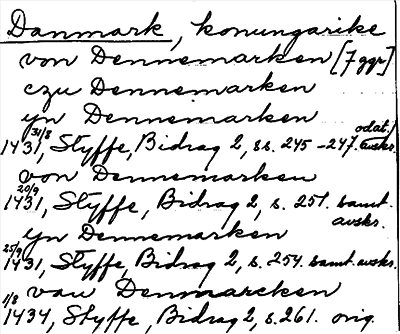 Danmark, konungarike
von Dennemarken [7 ggr]
czu Dennemarken
yn Dennemarken
31/8 1431, Styffe, Bidrag 2, ss. 245-247. odat. avskr.
von Dennemarken
20/9 1431, Styffe, Bidrag 2, s. 251. samt. avskr.
yn Dennemarken
25/9 1431, Styffe, Bidrag 2, s. 254. samt. avskr.
vau Denmarcken
1/8 1434, Styffe, Bidrag 2, s. 261. orig.